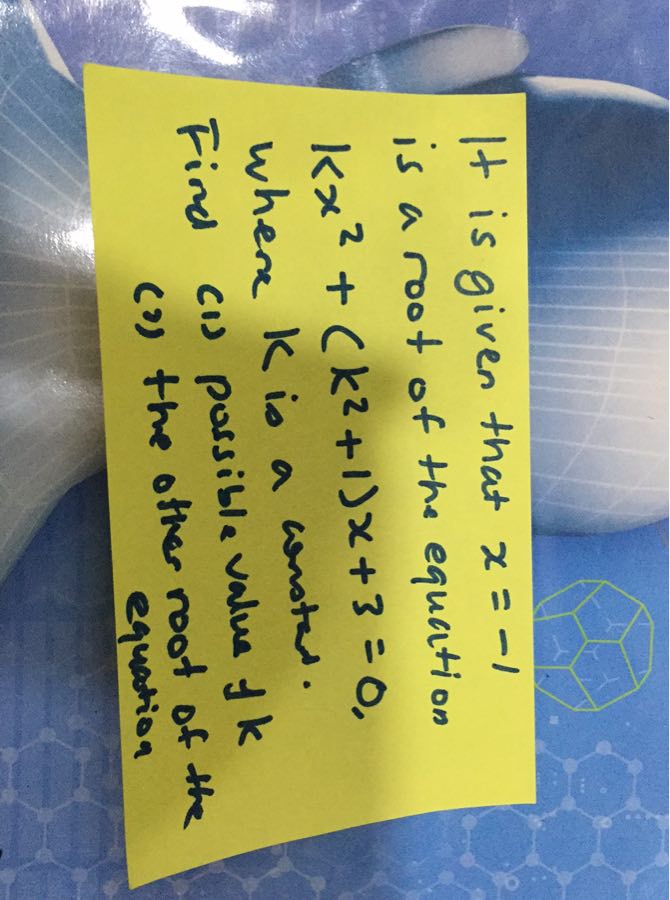 It is given that x = -1
is a root of the equation
kx² + (k²+1)x + 3 = 0,
where k is a constant.
Find (1) possible value of k
(2) the other root of the
equation